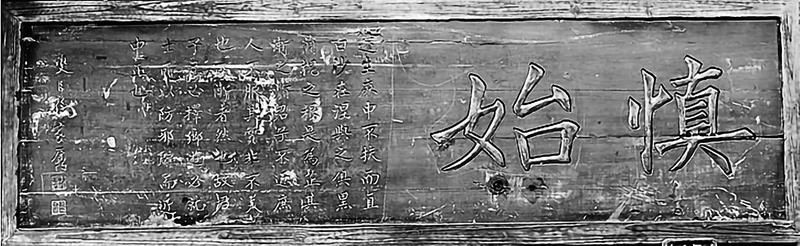 慎始
蓬生麻中不扶而直
白沙在涅與之俱黑
蘭槐之根是為芷其
漸之滫君子不近庶
人不服其質非不美
也所漸者然也故君
子居必擇鄉遊必就
士所以防邪僻而近
中正也